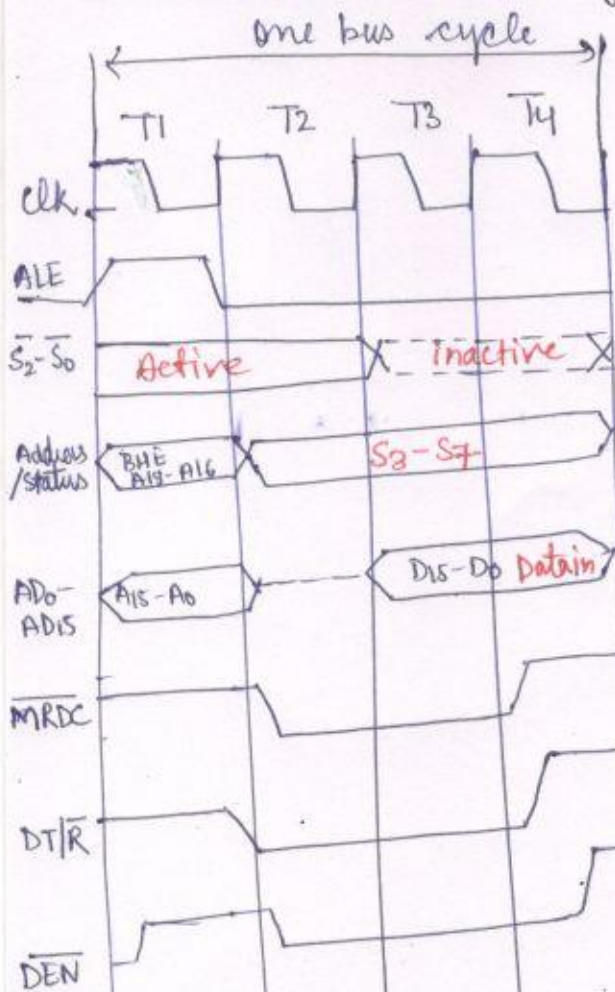 one bus cycle
T1 T2 T3 T4
clk
ALE
S̅2-S̅0 Active inactive
Address/Status BHE A19-A16 S3-S7
AD0-AD15 A15-A0 D15-D0 Datain
M̅R̅D̅C̅
DT/R̅
D̅E̅N̅